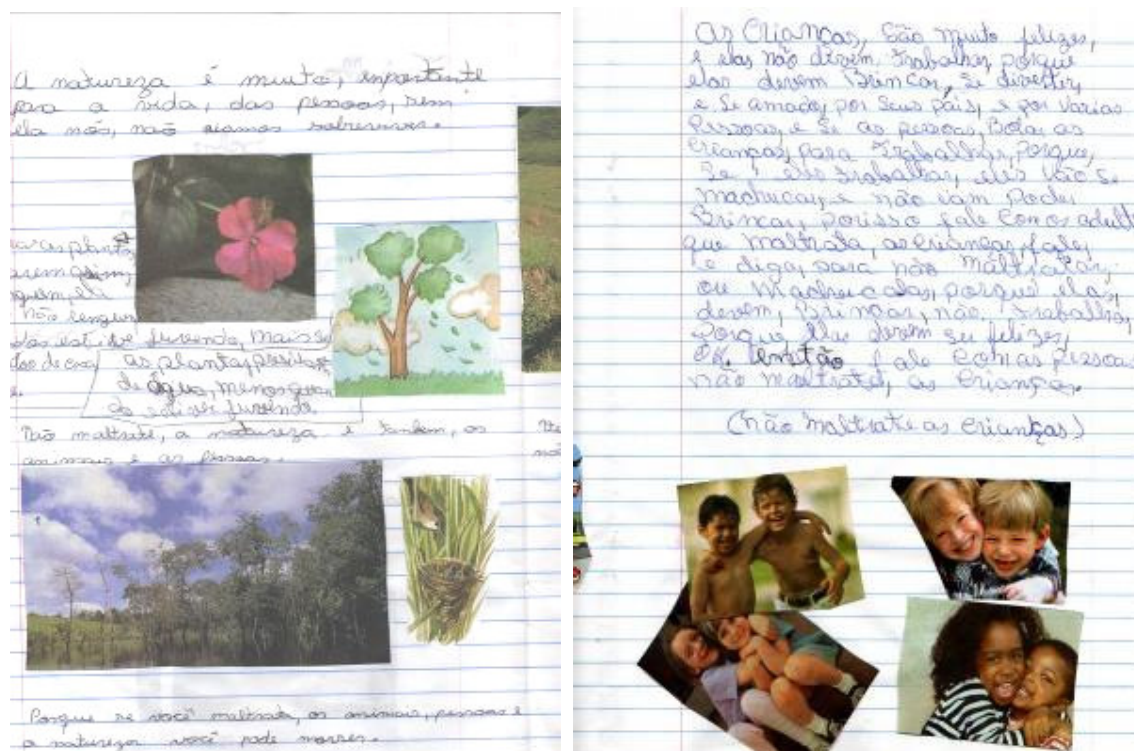 A natureza é muito, inportante
para a vida, das pessoas, sem
ela nós, não viamos sobreviver.
plant
Não
estiver fuvendo, mais se
as plantas, precisa
de água, menos quan
do estiver fuvendo.
Não maltrate, a natureza e tanbem, os
animais e as pessoas.
Porque se você maltrata, os animais, pessoas e
a natureza você pode morrer.
As Crianças, São muito felizes,
e elas não devem trabalhar, porque
elas devem Brincar, se diverter,
e Se amado, por Seus pais, e por varias
Pessoas, e Se as pessoas, Bota as
Crianças, para Trabalhar, Porque,
Se eles trabalhar, eles vão Se
machucar, e não vam Poder
Brincar, porisso fale Com os adult
que maltrata, as crianças, fale,
e diga, para não maltratar,
ou machucalas, porque elas,
devem, Brincar, não Trabalhar,
Porque Elas devem ser felizes,
então fale Com as Pessoas
não maltrate, as Criança.
(não maltrate as crianças)